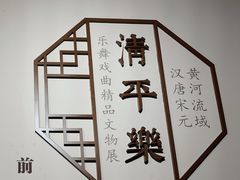 黄河流域
汉唐宋元
清平樂
乐舞戏曲精品文物展
前